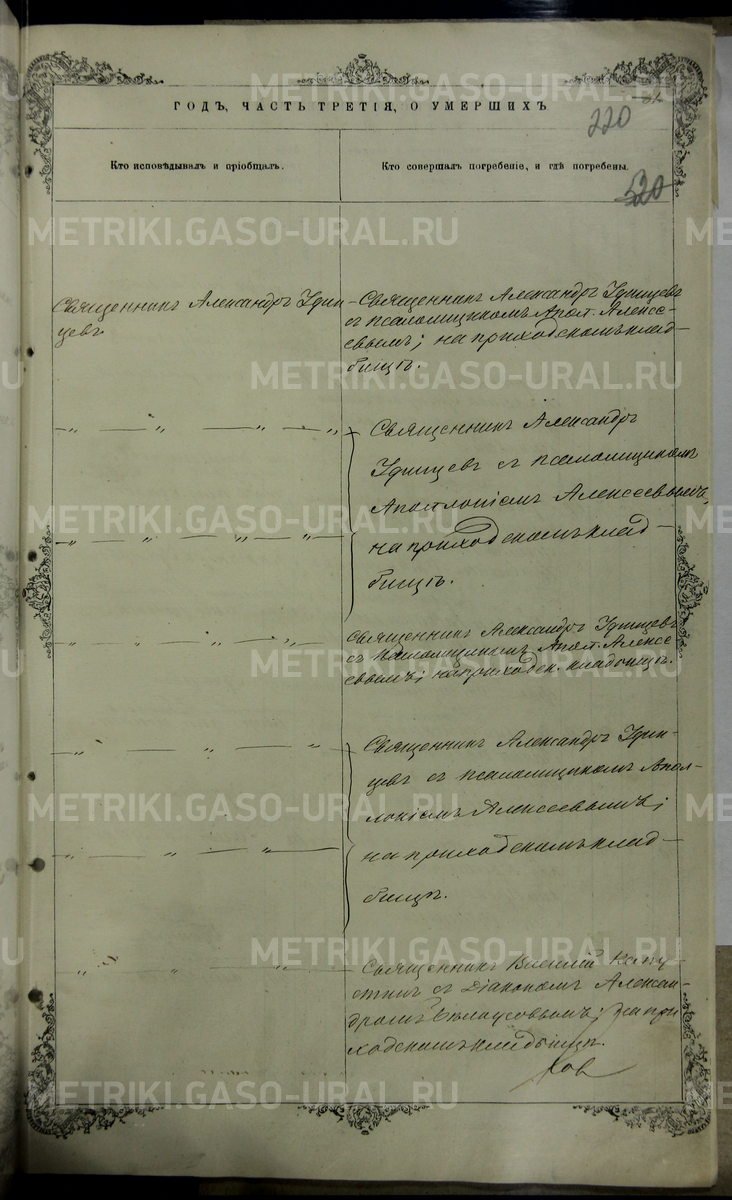 ГОДЪ, ЧАСТЬ ТРЕТІЯ, О УМЕРШИХЪ
220
Кто исповѣдывалъ и пріобщалъ.
Кто совершалъ погребеніе, и гдѣ погребены.
520
Священникъ Александръ Удин-
цевъ.
Священникъ Александръ Удинцевъ
съ псаломщикомъ Апол. Алексе-
евымъ; на приходскомъ клад-
бищѣ.
— „ — „ — „ — „
Священникъ Александръ
Удинцевъ съ псаломщикомъ
Аполлоніемъ Алексеевымъ,
— „ — „ — „ — „
на приходскомъ клад-
бищѣ.
„ — „ — „ — „
Священникъ Александръ Удинцевъ
съ псаломщикомъ Апол. Алексе-
евымъ; на приходск. кладбищѣ.
„ — „ — „ — „
Священникъ Александръ Удин-
цевъ съ псаломщикомъ Апол-
лоніемъ Алексеевымъ;
„ — „ — „ — „
на приходскомъ клад-
бищѣ.
„ — „ — „
Священникъ Василій Капу-
стинъ съ Діакономъ Алексан-
дромъ Бѣлоусовымъ; на при
ходскомъ кладбищѣ.
METRIKI.GASO-URAL.RU